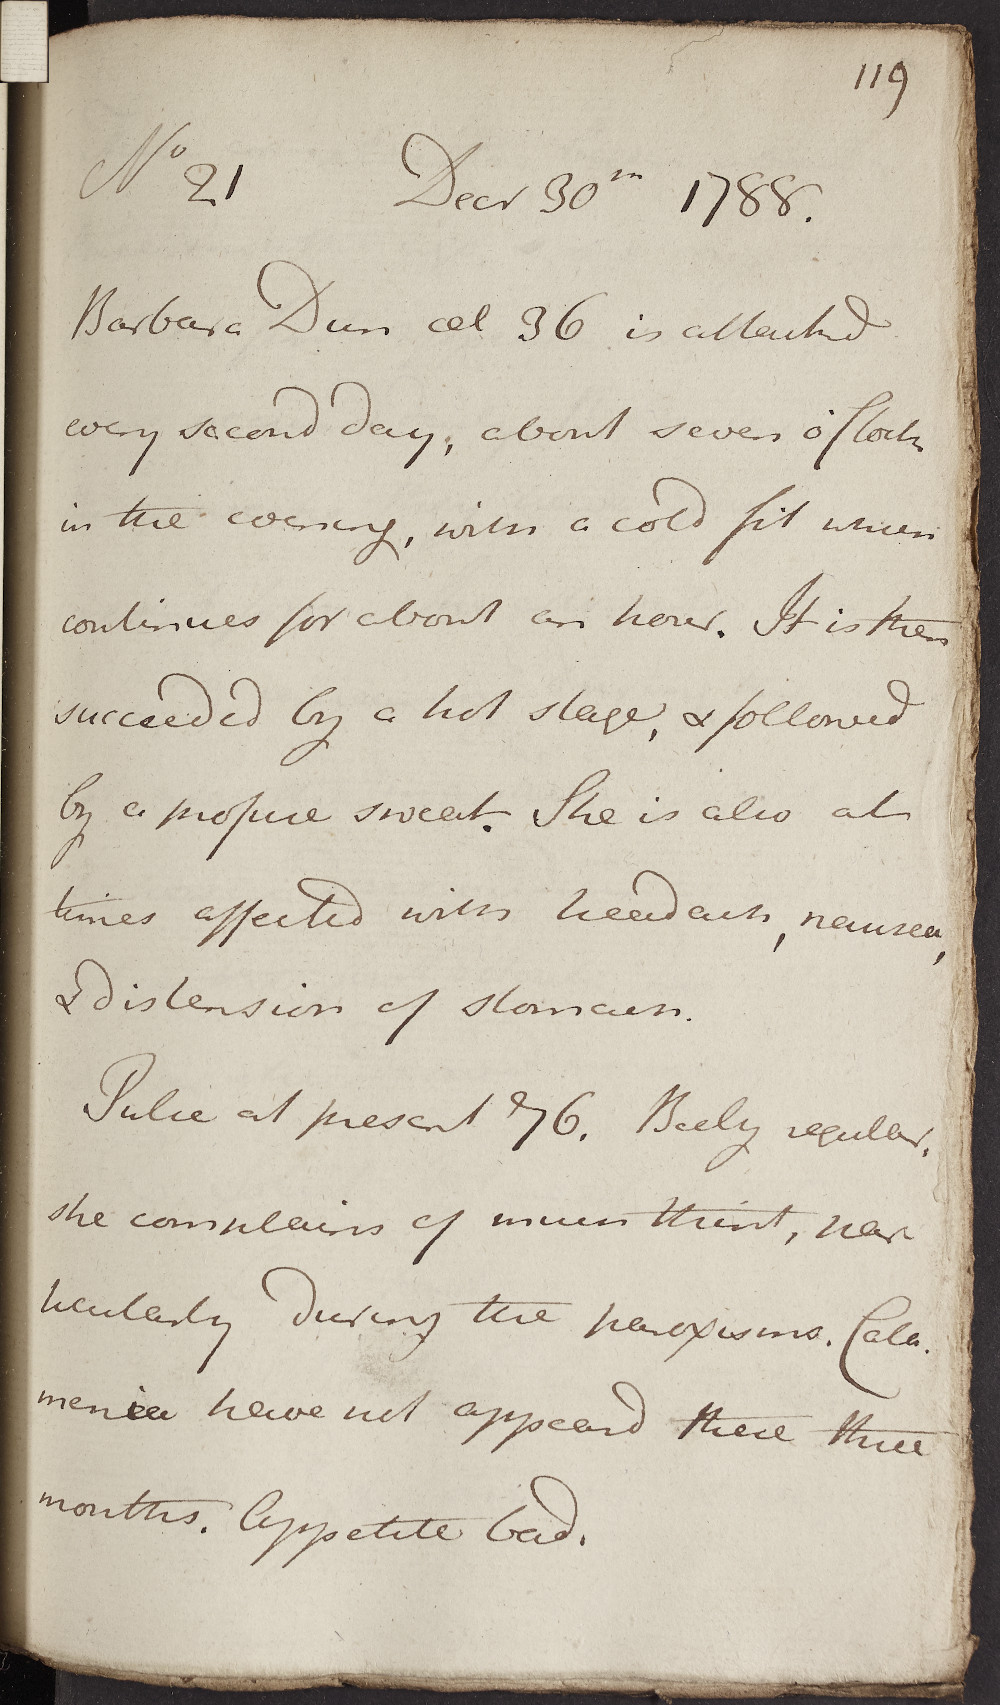 119
No 21 Decr 30th 1788.
Barbara Dun æt 36 is attacked
every second day, about seven o'Clock
in the evening, with a cold fit which
continues for about an hour. It is then
succeeded by a hot stage, & followed
by a profuse sweat. She is also at
times affected with headach, nausea,
& distension of stomach.
Pulse at present 76. Belly regular.
she complains of much thirst, par
ticularly during the paroxisms. Cata.
menia have not appeard these three
months. Appetite bad.